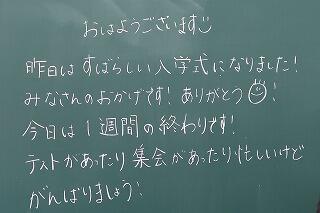 おはようございます
昨日はすばらしい入学式になりました!
みなさんのおかげです!ありがとう!
今日は1週間の終わりです!
テストがあったり集会があったり忙しいけど
がんばりましょう!